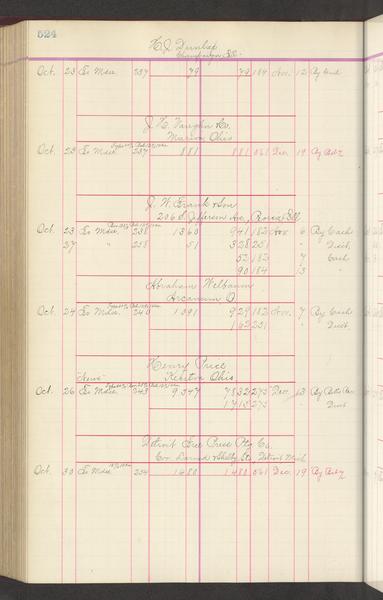 524
H. J. Dunlap
Champaign, Ill.
Oct. 23 To Mdse. 237 79 79 184 Nov. 12 By
Marion Ohio
Oct. 23 To Mdse. 237 881 881 061 Dec. 19 By
J. W. & Son
206 S. Jefferson Ave.,
Oct. 23 To Mdse. 238 1360 941 182 Nov. 6 By Cash
27 " 258 51 328 251 " Disct.
52 182 7 Cash
90 184 13 "
Abraham
Arcanum O.
Oct. 24 To Mdse. 240 1091 929 182 Nov. 7 By Cash
162 251 " Disct
Henry Price,
Kenton Ohio
Oct. 26 To Mdse. 243 9347 7832 275 Dec. 13 By
1515 275 " Disct
Detroit Free Press Ptg. Co.
Cor. Larned & Shelby St. Detroit Mich
Oct. 30 To Mdse 254 1480 1480 061 Dec. 19 By